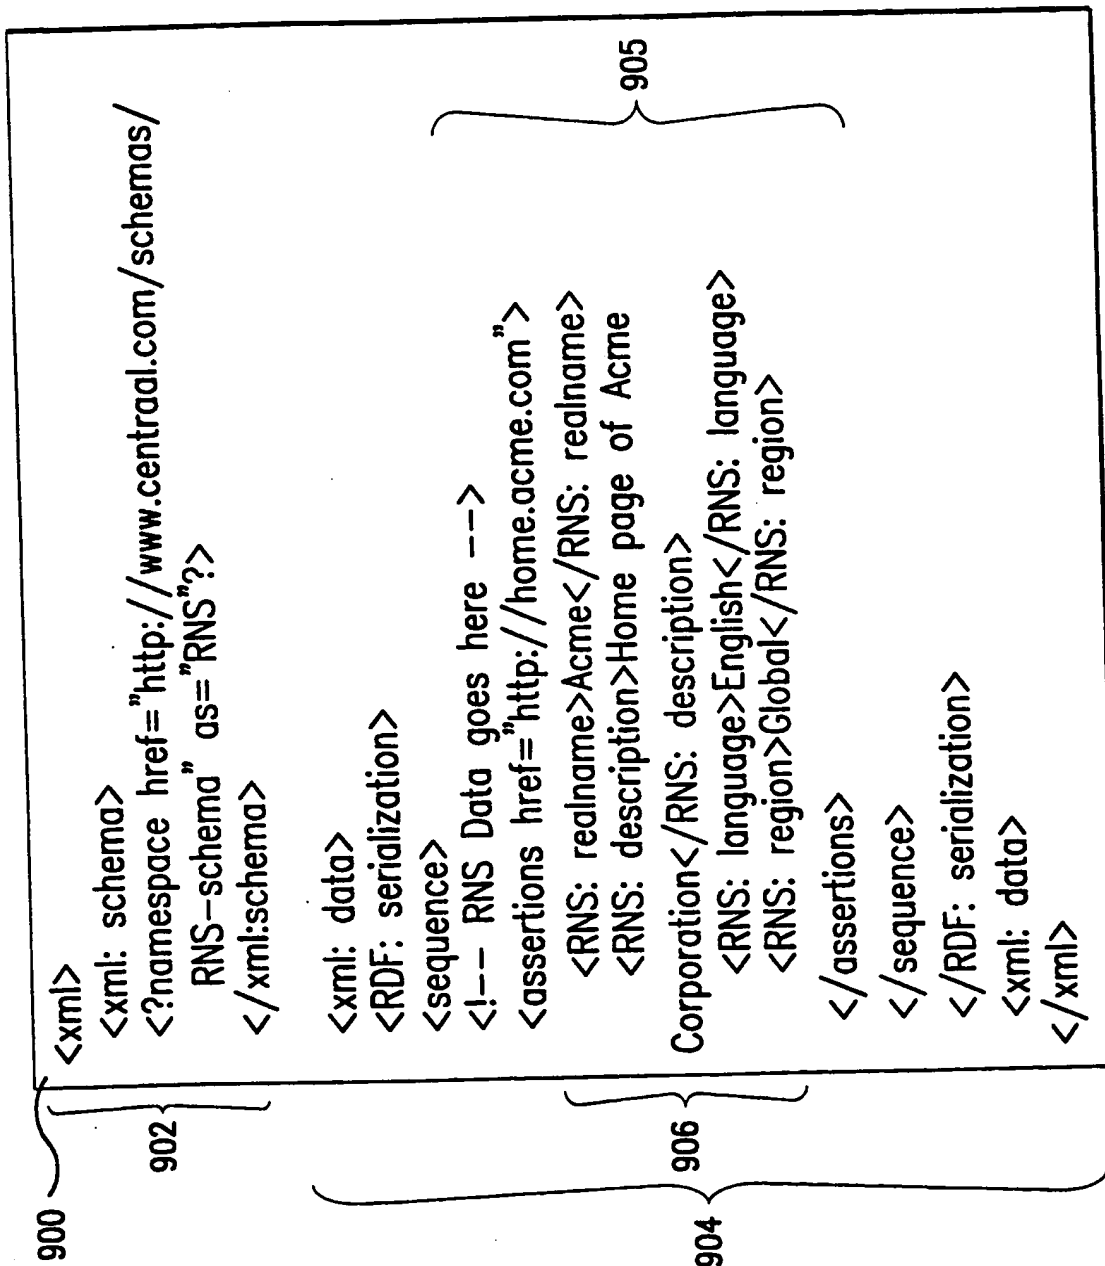 900
<xml>
<xml: schema>
<?namespace href="http://www.centraal.com/schemas/
RNS-schema" as="RNS"?>
</xml:schema>
902
<xml: data>
<RDF: serialization>
<sequence>
<!-- RNS Data goes here -->
<assertions href="http://home.acme.com">
<RNS: realname>Acme</RNS: realname>
<RNS: description>Home page of Acme
Corporation</RNS: description>
<RNS: language>English</RNS: language>
<RNS: region>Global</RNS: region>
</assertions>
</sequence>
</RDF: serialization>
<xml: data>
</xml>
904
906
905